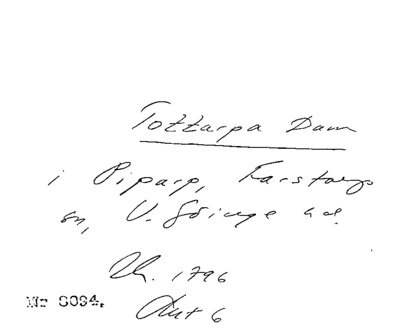 Tottarpa Dam
i Piparp, Farstorps
sn, V. Göinge hd.
Uk. 1796
Akt 6
Nr 8094.